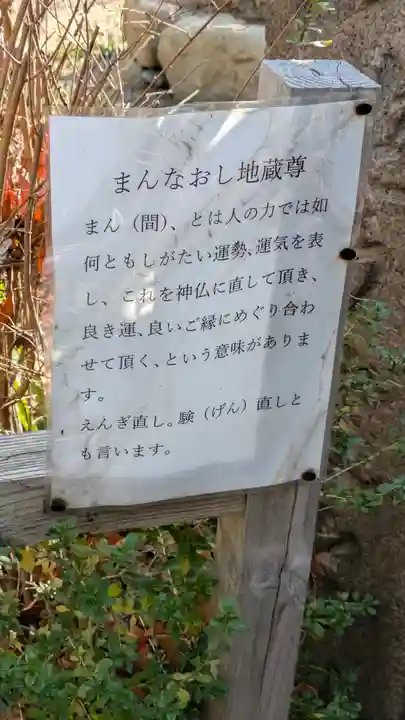 まんなおし地蔵尊
まん（間）、とは人の力では如
何ともしがたい運勢、運気を表
し、これを神仏に直して頂き、
良き運、良いご縁にめぐり合わ
せて頂く、という意味がありま
す。
えんぎ直し。験（げん）直しと
も言います。